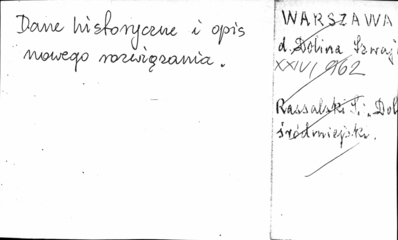 Dane historyczne i opis
nowego rozwiązania.
WARSZAWA
d. Dolina Szwaj
XXIV/1962
Rassalski T.: Dol
śródmiejski.